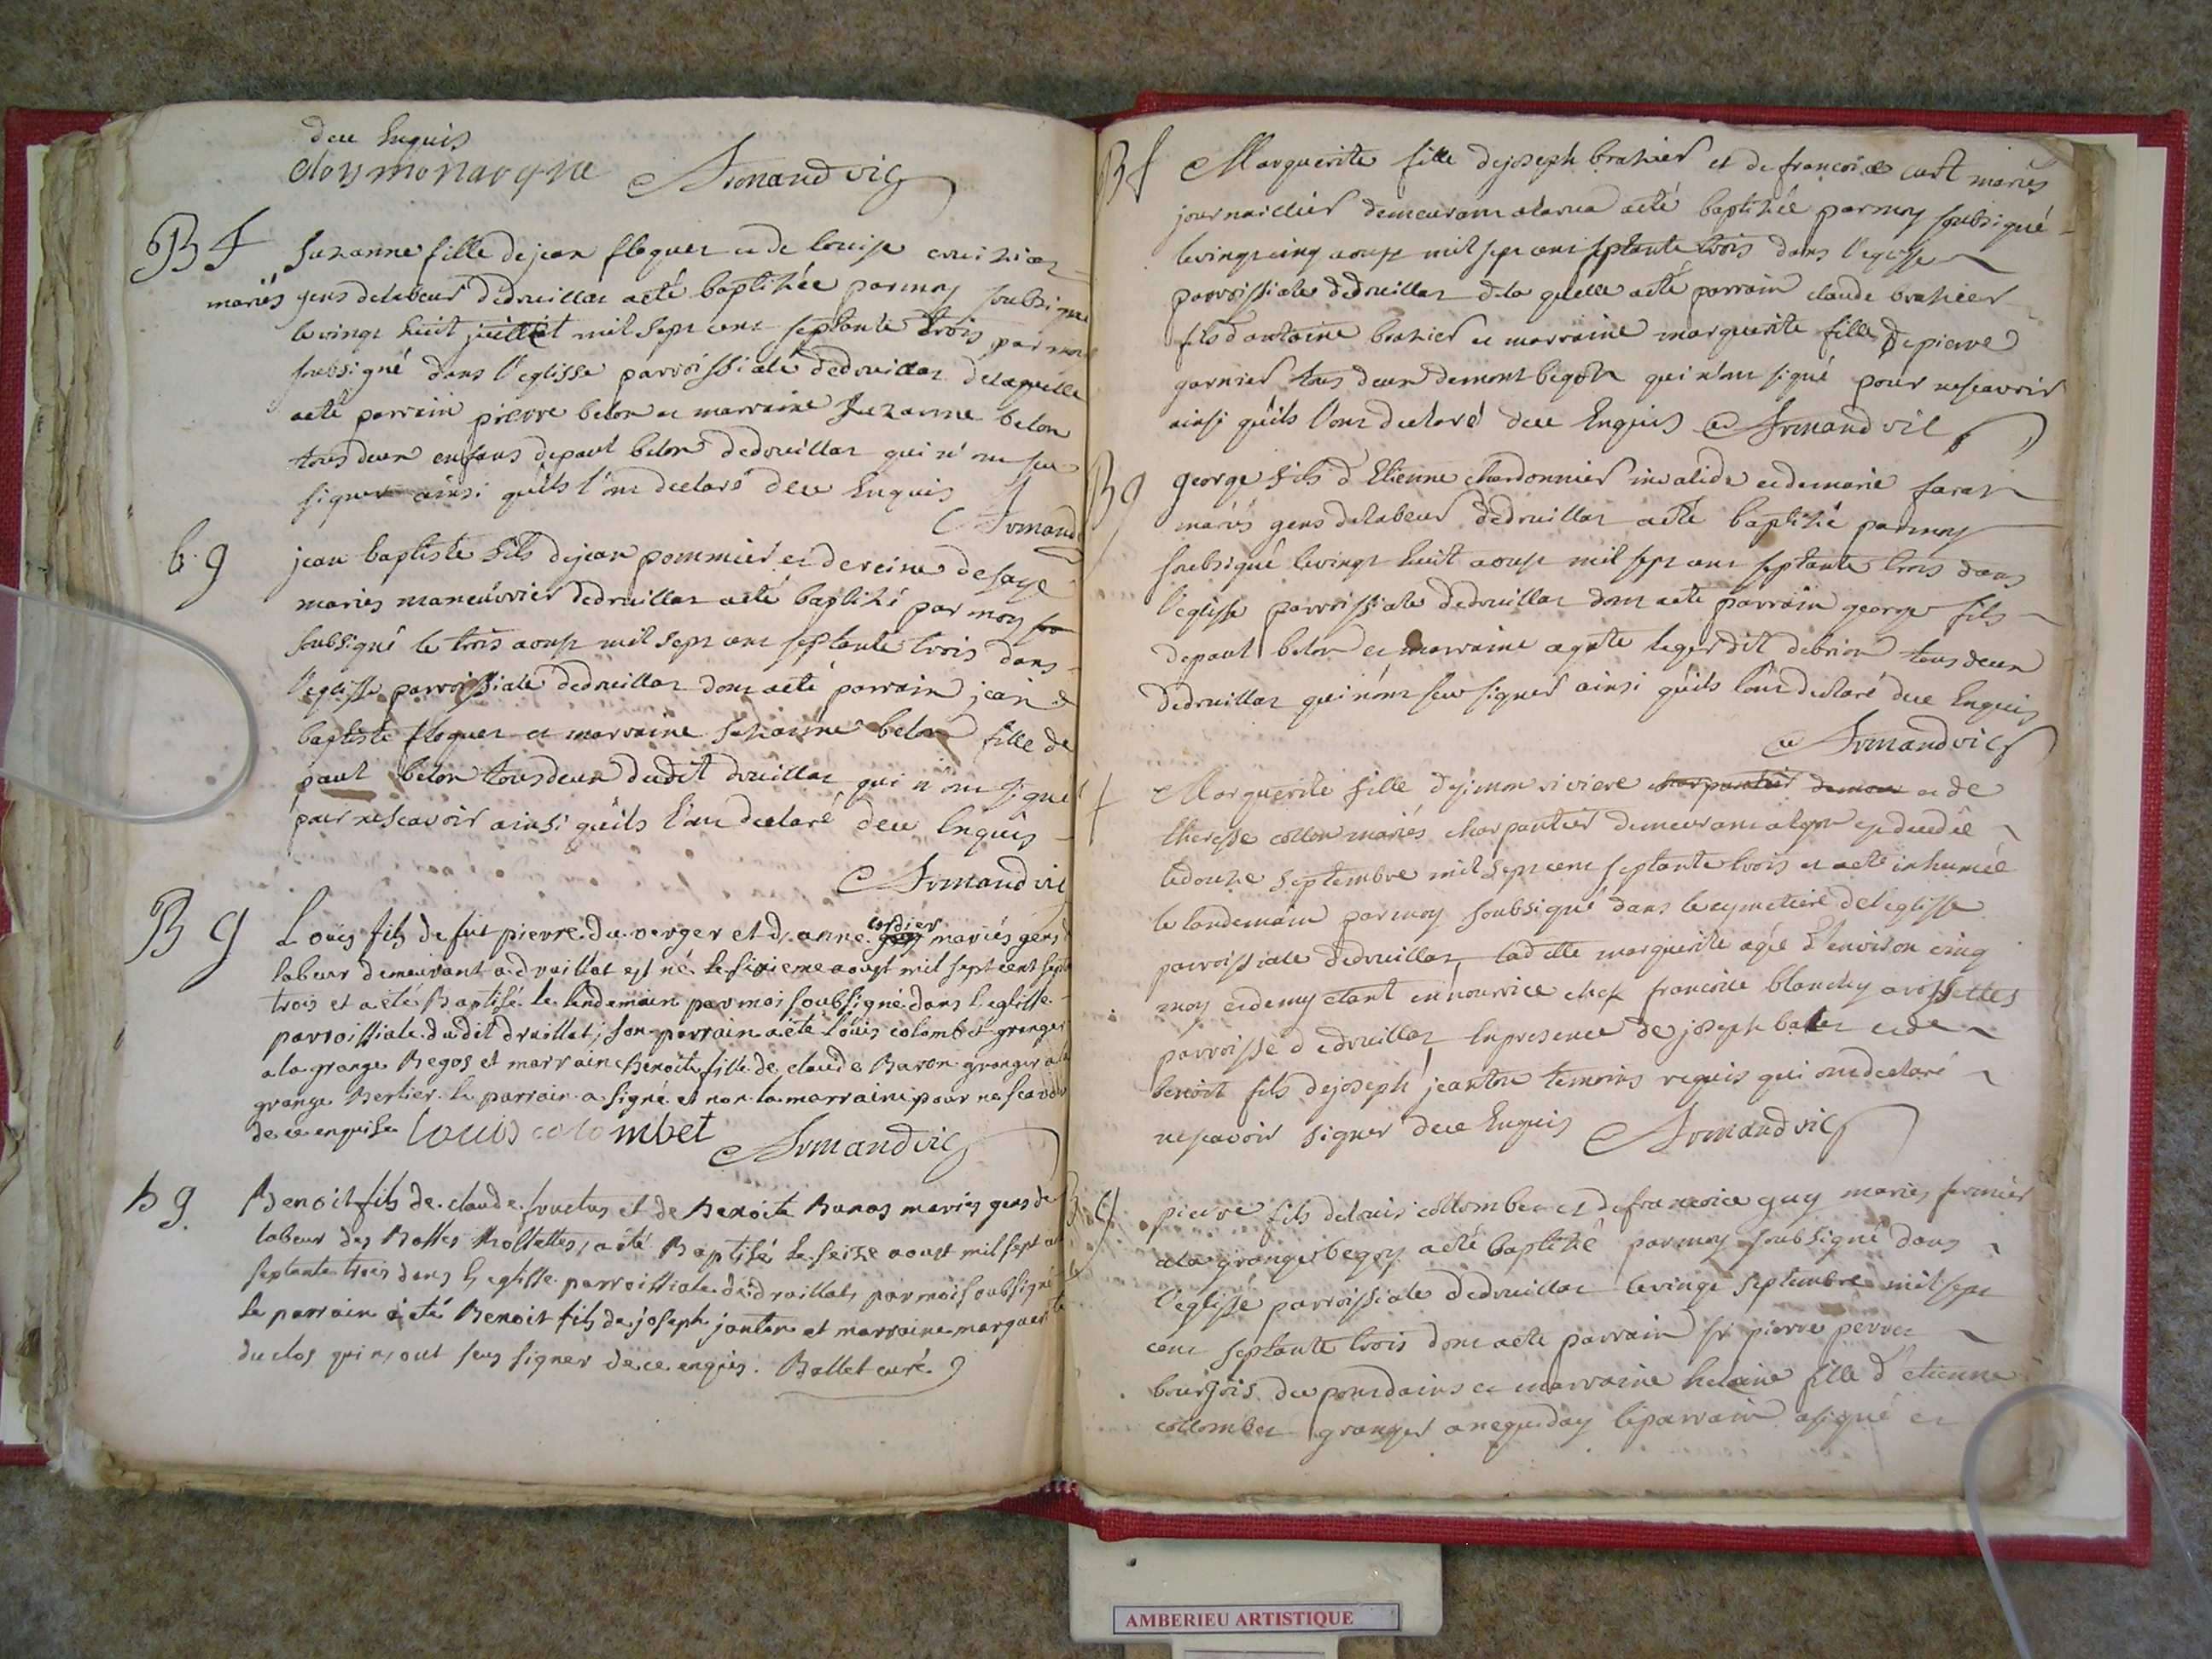 de ce Enquis
cloy monarque Armand vic
B F Suzanne fille de jean floquet et de louise
mariés gens de labeur dedruillat a eté baptizée par moy soubsigné
le vingt huit juillet mil sept cent septante trois par moy
soubsigné dans l'eglisse parroissiale dedruillat de laquelle
a eté parrain pierre belon et marraine Suzanne belon
tous deux enfans de paul belon dedruillat qui n'ont sceu
signer ainsi quils l'ont declaré de ce Enquis
Armand
b. g jean baptiste fils de jean pommier et de reine defaye
mariés maneuvrier dedruillat a eté baptizé par moy so
soubsigné le trois aoust mil sept cent septante trois dans
l'eglisse parroissiale dedruillat dont a eté parrain jean
baptiste floquet et marraine Suzanne belon fille de
paul belon tous deux dudit druillat qui n'ont signé
pour ne scavoir ainsi quils l'ont declaré de ce Enquis
Armand vic
B g Louis fils de fut pierre du verger et d'anne cordier guy mariés gens d
labeur demeurant a druillat est né le sixieme aoust mil sept cent sept
trois et a eté Baptisé le lendemain par moi soubsigné dans l'eglisse
parroissiale dudit druillat, son parrain a eté louis colombet granger
a la grange Begos et marraine Benoite fille de claude Baron granger a la
grange Berlier le parrain a signé et non la marraine pour ne scavoir
de ce enquise louis colombet Armand vic
b g. Benoit fils de claude fructus et de Benoite Bunos mariés gens de
labeur des Basses Rossettes, a eté Baptisé le seize aoust mil sept cent
septante trois dans l'eglisse parroissiale de druillat, par moi soubsigné
le parrain a eté Benoit fils de joseph janton et marraine marguerite
du clos qui n'ont seus signer de ce enquis. Ballet curé
B f Marguerite fille de joseph brazier et de francoise curt mariés
journaillier demeurant a a eté baptizée par moy soubsigné
le vingt cinq aoust mil sept cent septante trois dans l'eglisse
parroissiale dedruillat de la quelle a eté parrain claude brazier
fils d'antoine brazier et marraine marguerite fille de pierre
garnier tous deux de mont begot qui n'ont signé pour ne scavoir
ainsi quils l'ont declaré de ce Enquis Armand vic
B g george fils d'Etienne chardonnier invalide et de marie farat
mariés gens de labeur dedruillat a eté baptizé par moy
soubsigné le vingt huit aoust mil sept cent septante trois dans
l'eglisse parroissiale dedruillat dont a eté parrain george fils
de paul belon et marraine agate leger dit debrion tous deux
dedruillat qui n'ont sceu signer ainsi quils l'ont declaré de ce Enquis
Armand vic
+ Marguerite fille de simon riviere charpantier demeu et de
therese collon mariés charpantier demeurant a lyon est decedée
le douze septembre mil sept cent septante trois et a eté inhumée
le landemain par moy soubsigné dans le cymetiere de l'eglisse
parroissiale dedruillat, ladite marguerite agée d'environ cinq
moy et demy etant en nourrice chez francoise blanchy a rossettes
parroisse dedruillat, En presence de joseph ballet et de
benoit fils de joseph janton temoins requis qui ont declaré
ne scavoir signer de ce Enquis Armand vic
B g pierre fils de louis collombet et de francoise guy mariés fermier
a la grange begoz a eté baptizé par moy soubsigné dans
l'eglisse parroissiale dedruillat le vingt septembre mil sept
cent septante trois dont a eté parrain sr pierre perret
bourgois de pondains et marraine helaine fille d'etienne
collombet granger a neguiday le parrain a signé et
AMBERIEU ARTISTIQUE